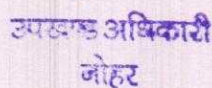 उपखण्ड अधिकारी
जोहर